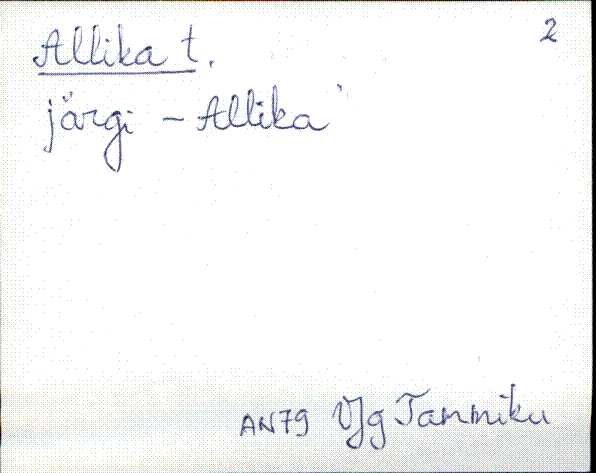 2
Allika t.
järgi – Allika
AN79 VJg Tammiku